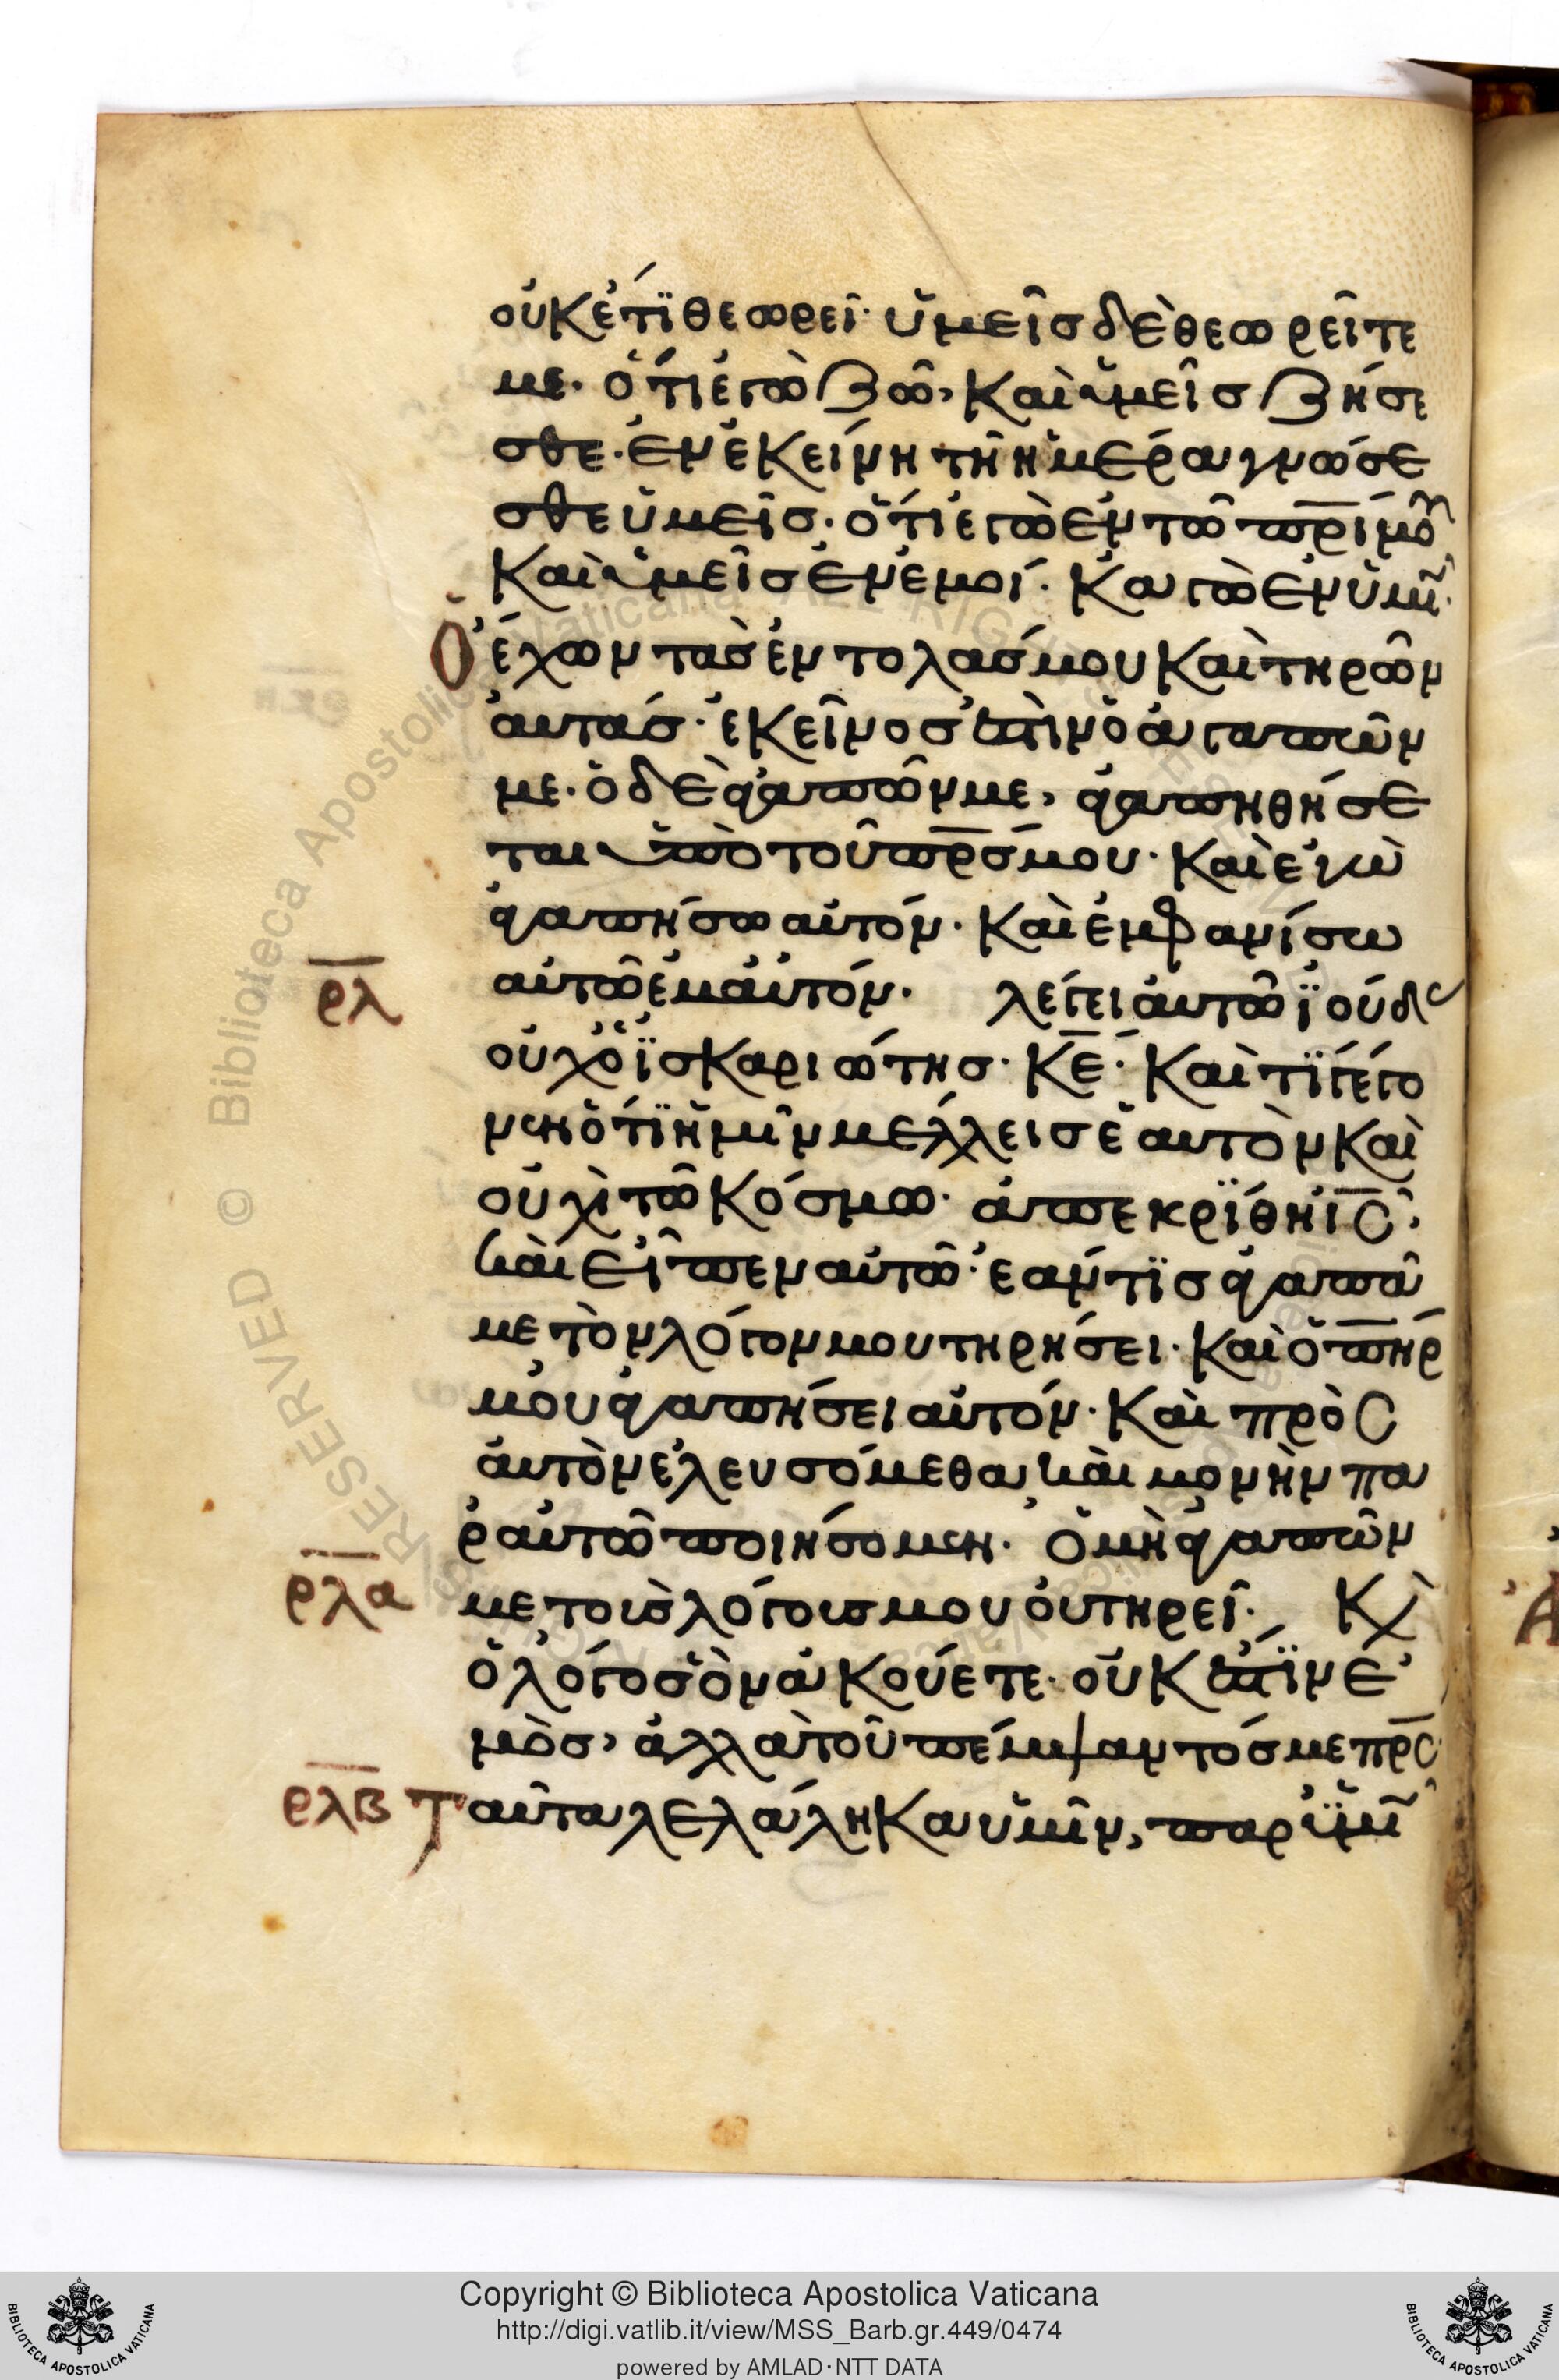 οὐκέτϊ θεωρεῖ· ὑμεῖσ δὲ θεωρεῖτε
με· ὅτι ἐγὼ ζῶ, καὶ ὑμεῖσ ζήσε
σθε· ἐν ἐκείνη τῆ ἡμέρα γνώσε
σθε ὑμεῖσ· ὅτι ἐγὼ ἐν τῶ π̅ρ̅ι̅ μου
καὶ ὑμεῖσ ἐν ἐμοί· κἀγὼ ἐν ὑμῖν·
Ὁ ἔχων τὰσ ἐντολάσ μου καὶ τηρῶν
αὐτάσ· ἐκεῖνοσ ἐστὶν ὁ ἀγαπῶν
με· ὁ δὲ ἀγαπῶν με, ἀγαπηθήσε
ται ὑπὸ τοῦ π̅ρ̅σ̅ μου· καὶ ἐγὼ
ἀγαπήσω αὐτόν· καὶ ἐμφανίσω
ρ̅λ̅ αὐτῶ ἐμαυτόν· λέγει αὐτῶ ϊούδασ
οὐχ ὁ ϊσκαριώτησ· κ̅ε̅· καὶ τϊ γέγο
νεν ὅτϊ ἡμῖν μέλλεισ ἐ αυτὸν καὶ
οὐχὶ τῶ κόσμω· ἀπεκρϊθη ι̅σ̅,
καὶ εἶπεν αὐτῶ· ἐάν τϊσ ἀγαπᾶ
με τὸν λόγον μου τηρήσει· καὶ ὁ π̅η̅ρ̅
μου ἀγαπήσει αὐτόν· καὶ πρὸσ
αὐτὸν ἐλευσόμεθα, καὶ μονὴν πα
ρ αὐτῶ ποιήσομεν· Ὁ μὴ ἀγαπῶν
ρ̅λ̅α̅ με τοὺσ λόγουσ μου οὐ τηρεῖ· Κὶ
ὁ λόγοσ ὃν ἀκούετε· οὐκ ἔστϊν ἐ
μὸσ, ἀλλὰ τοῦ πέμψαντόσ με π̅ρ̅σ̅·
ρ̅λ̅β̅ Ταῦτα λελάληκα ὑμῖν, παρ ὑμῖν
Copyright © Biblioteca Apostolica Vaticana
http://digi.vatlib.it/view/MSS_Barb.gr.449/0474
powered by AMLAD·NTT DATA